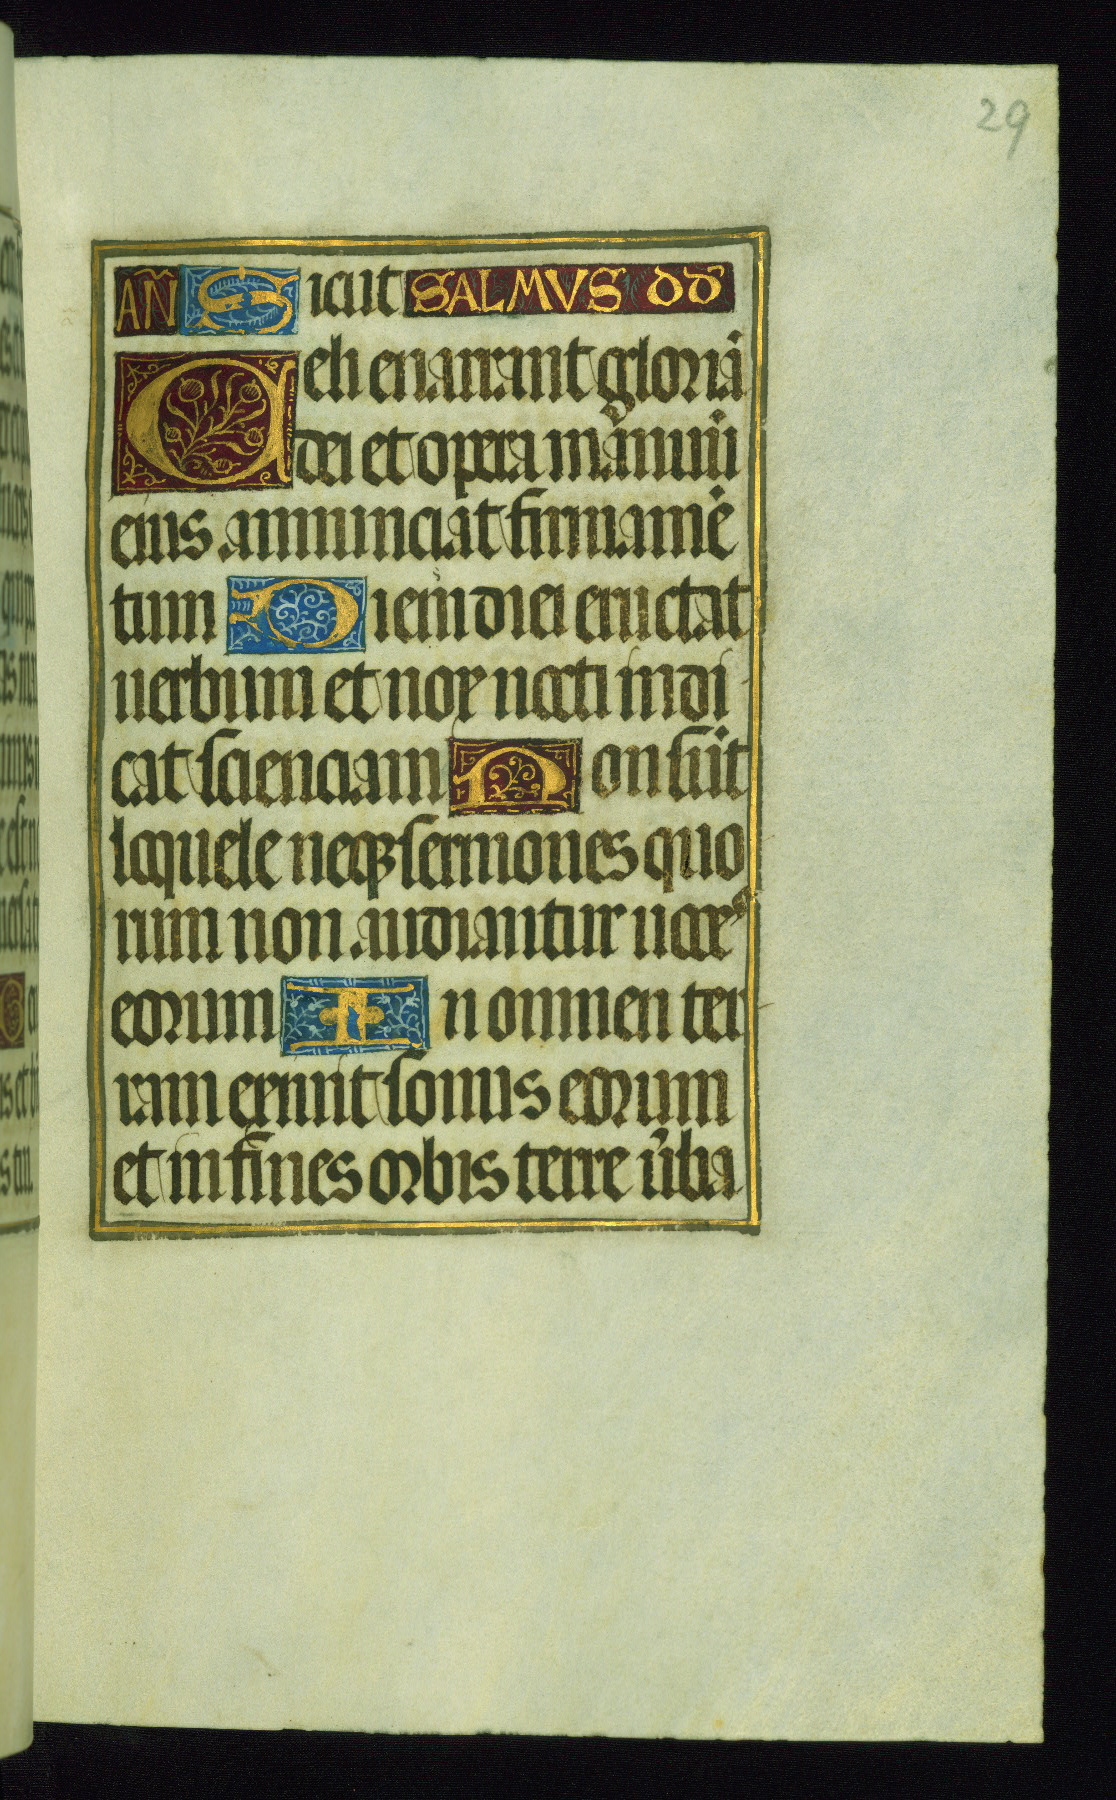 29
AÑ Sicut SALMVS dd̃
Celi enarrant gloriã
dei et opera mãnuũ
eius annunciat firmamẽ
tum Diem diei eructat
uerbum et nox nocti indi
cat scienciam Non sũt
loquele neqꝫ sermones quo
rum non audiantur uoces
eorum In omnen ter
ram exiuit sonus eorum
et in fines orbis terre ũba